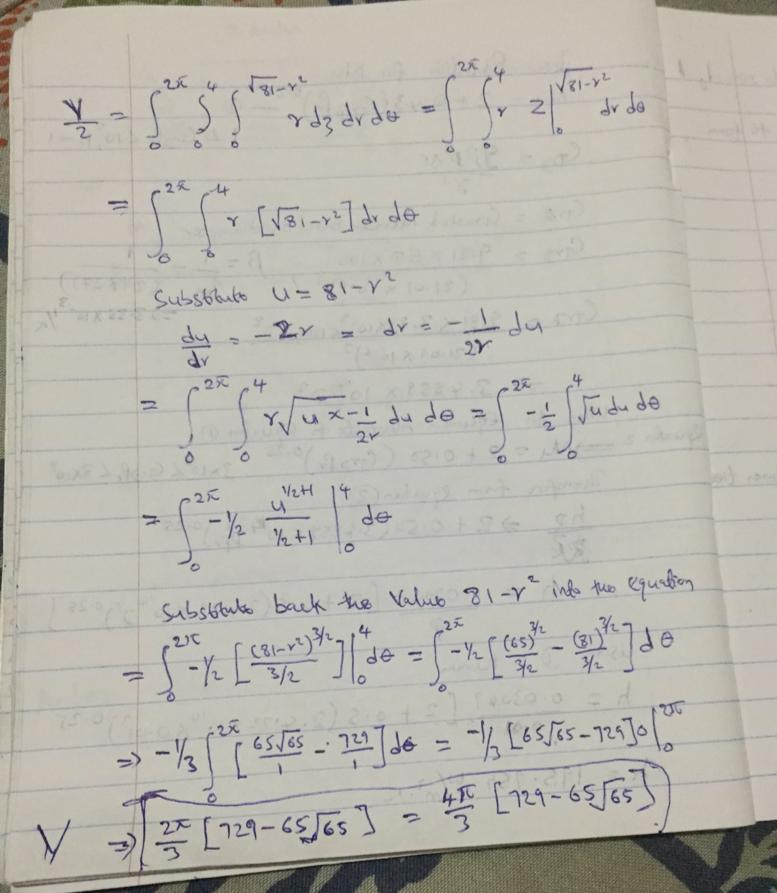 V/2 = ∫₀^2π ∫₀^4 ∫₀^√81-r² r dz dr dθ = ∫₀^2π ∫₀^4 r z|₀^√81-r² dr dθ
= ∫₀^2π ∫₀^4 r [√81-r²] dr dθ
Substitute u = 81-r²
du/dr = -2r = dr = -1/2r du
= ∫₀^2π ∫₀^4 r√u x -1/2r du dθ = ∫₀^2π -1/2 ∫₀^4 √u du dθ
= ∫₀^2π -1/2 u^1/2+1 / 1/2+1 |₀^4 dθ
Substitute back the value 81-r² into the equation
= ∫₀^2π -1/2 [(81-r²)^3/2 / 3/2]|₀^4 dθ = ∫₀^2π -1/2 [(65)^3/2 / 3/2 - (81)^3/2 / 3/2] dθ
⇒ -1/3 ∫₀^2π [65√65/1 - 729/1] dθ = -1/3 [65√65-729] θ|₀^2π
V ⇒ [2π/3 [729-65√65] = 4π/3 [729-65√65]